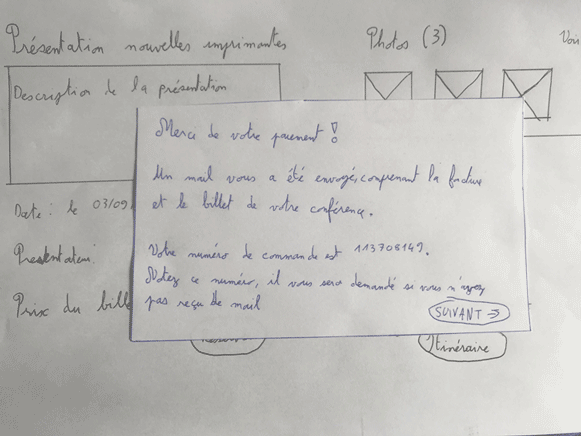 Présentation nouvelles imprimantes
Photos (3)
Voi
Description de la présentation
Merci de votre paiement !
Un mail vous a été envoyé, comprenant la facture
et le billet de votre conférence.
Date : le 03/09
Votre numéro de commande est 113708149.
Présentateur :
Notez ce numéro, il vous sera demandé si vous n'avez
pas reçu de mail
Prix du bille
SUIVANT →
Itinéraire